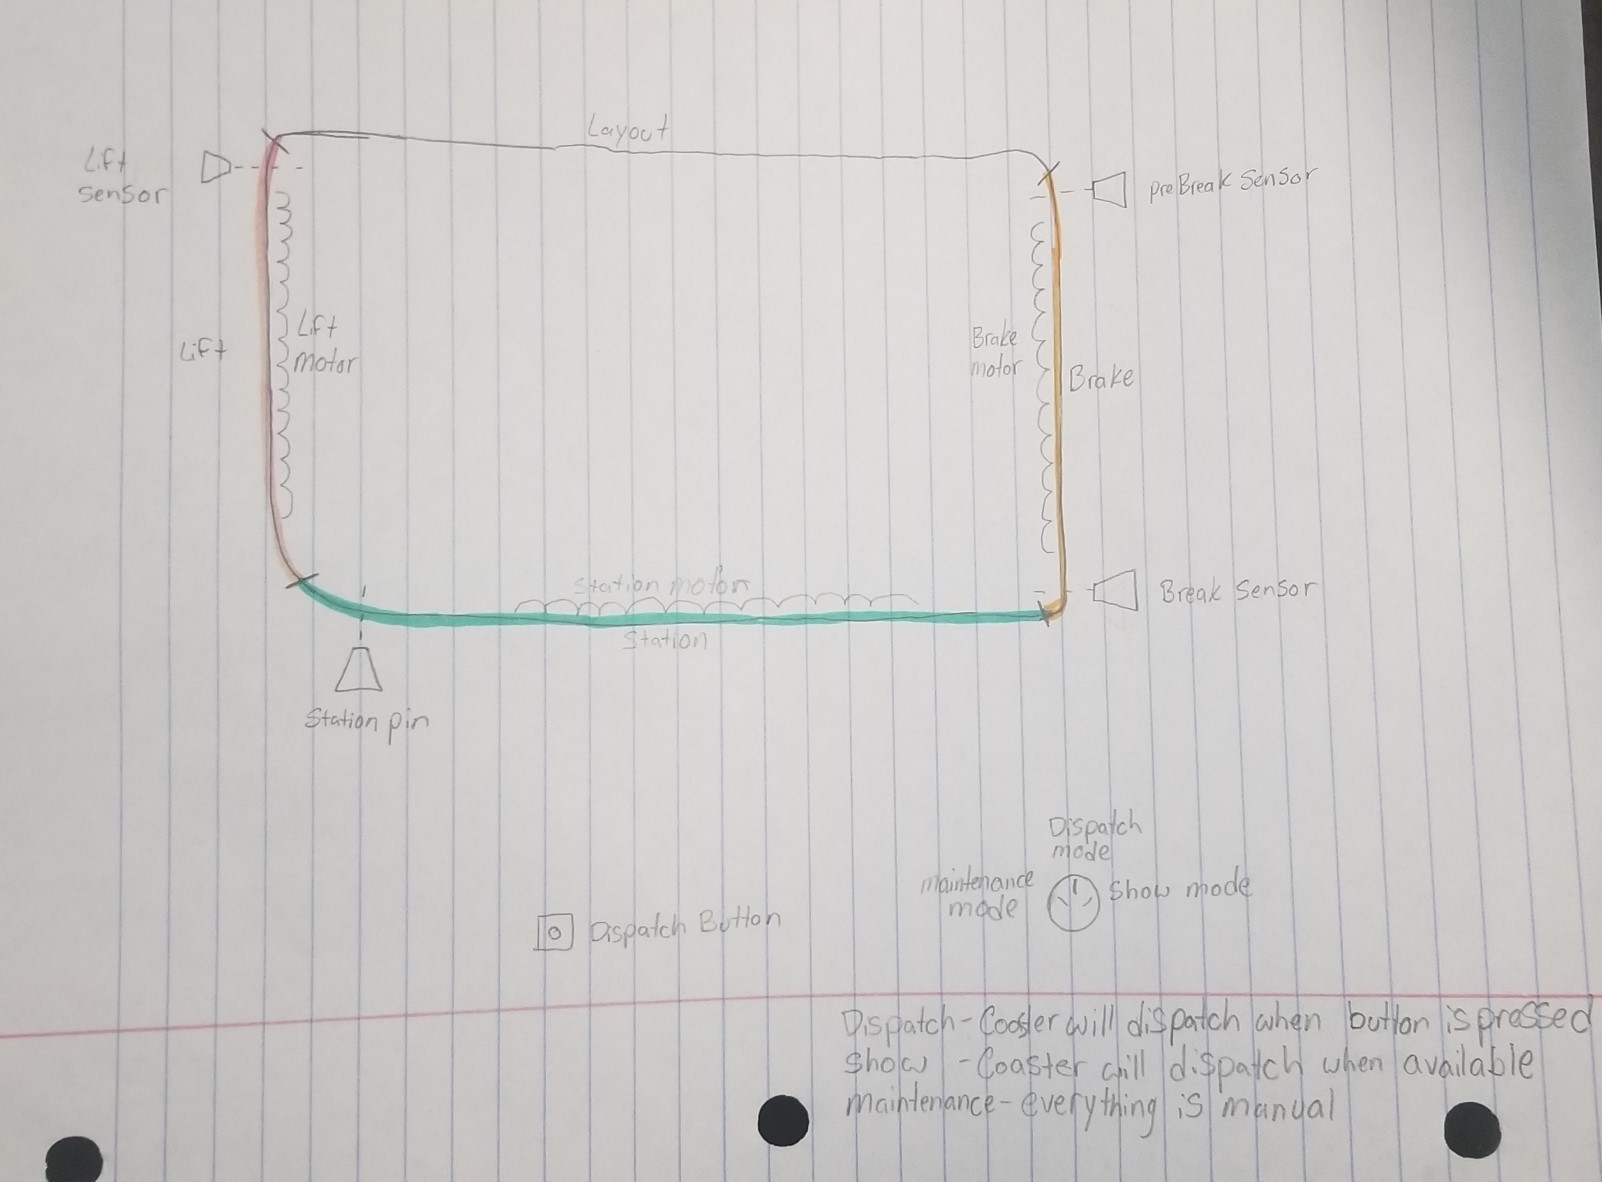 Layout
Lift
sensor
preBreak Sensor
Lift
motor
Lift
Brake
motor
Brake
Station motor
Station
Break Sensor
Station pin
Dispatch
mode
maintenance
mode
Show mode
Dispatch Button
Dispatch - Cooster will dispatch when button is pressed
Show - Coaster will dispatch when available
maintenance - everything is manual